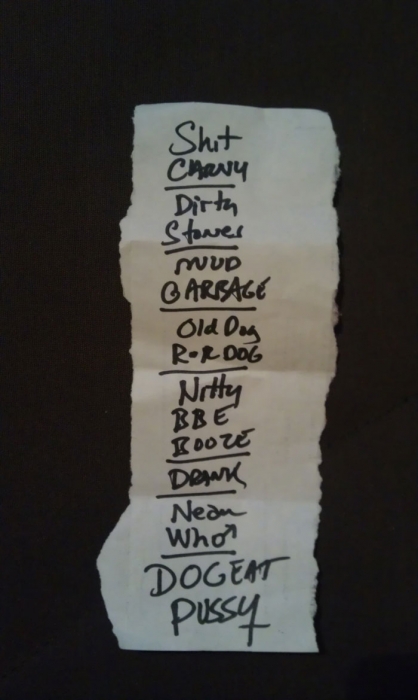 Shit
CARNY
Dirty
Stones
MUD
GARBAGE
Old Dog
R+R DOG
Nitty
BBE
BOOZE
DRANK
Nean
Who↗
DOGEAT
PUSSY